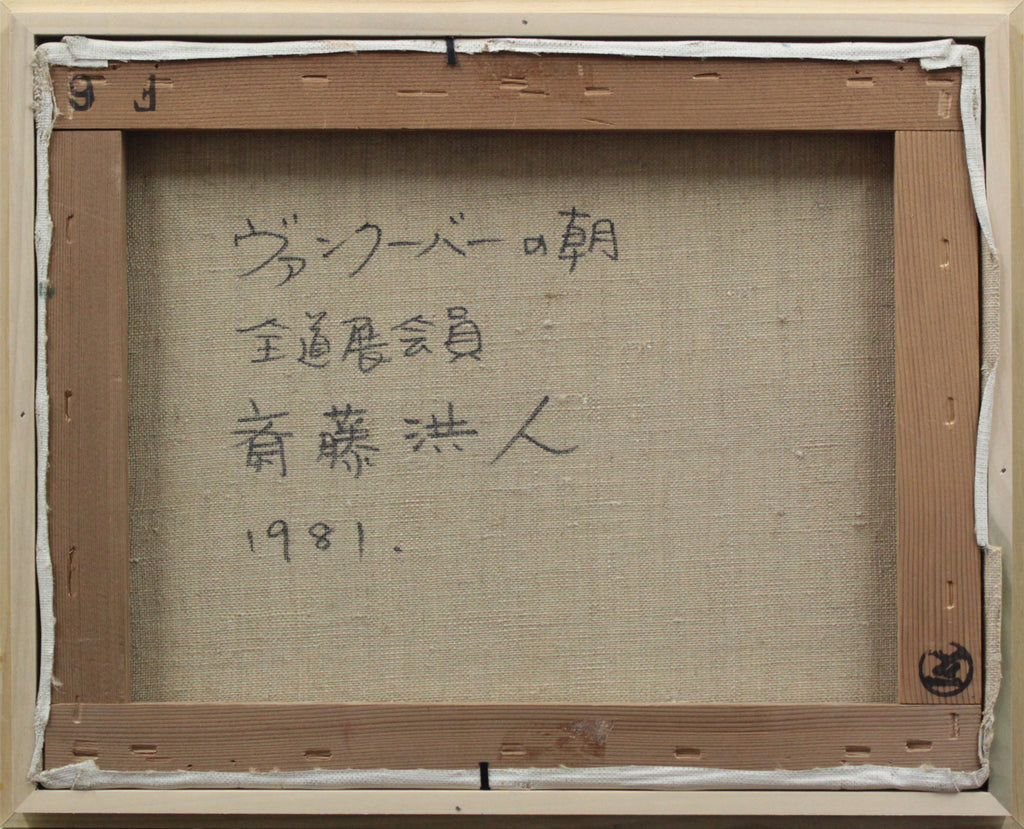 ヴァンクーバーの朝
全道展会員
斉藤洪人
1981.